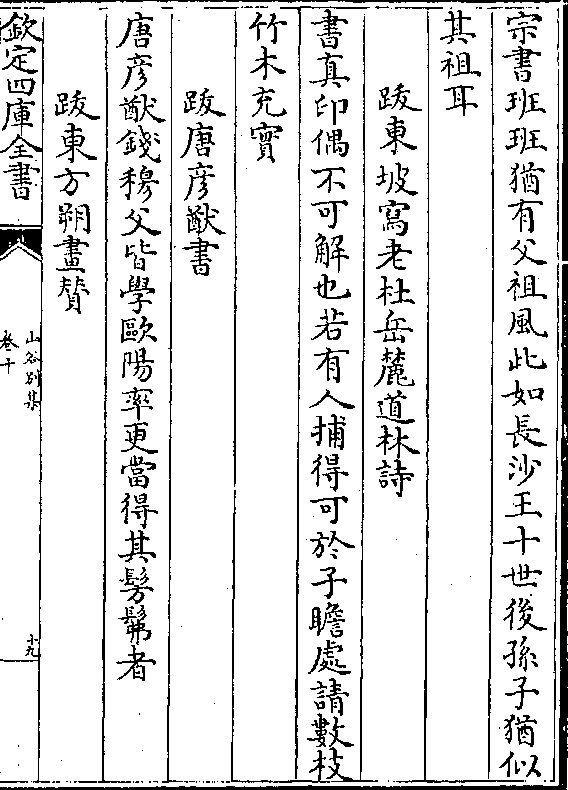 宗書班班猶有父祖風此如長沙王十世後孫子猶似
其祖耳
跋東坡寫老杜岳麓道林詩
書真印偶不可解也若有人捕得可於子瞻處請數枝
竹木充實
跋唐彦猷書
唐彦猷錢穆父皆學歐陽率更當得其髣髴者
跋東方朔畫賛
欽定四庫全書
山谷别集
卷十
十九